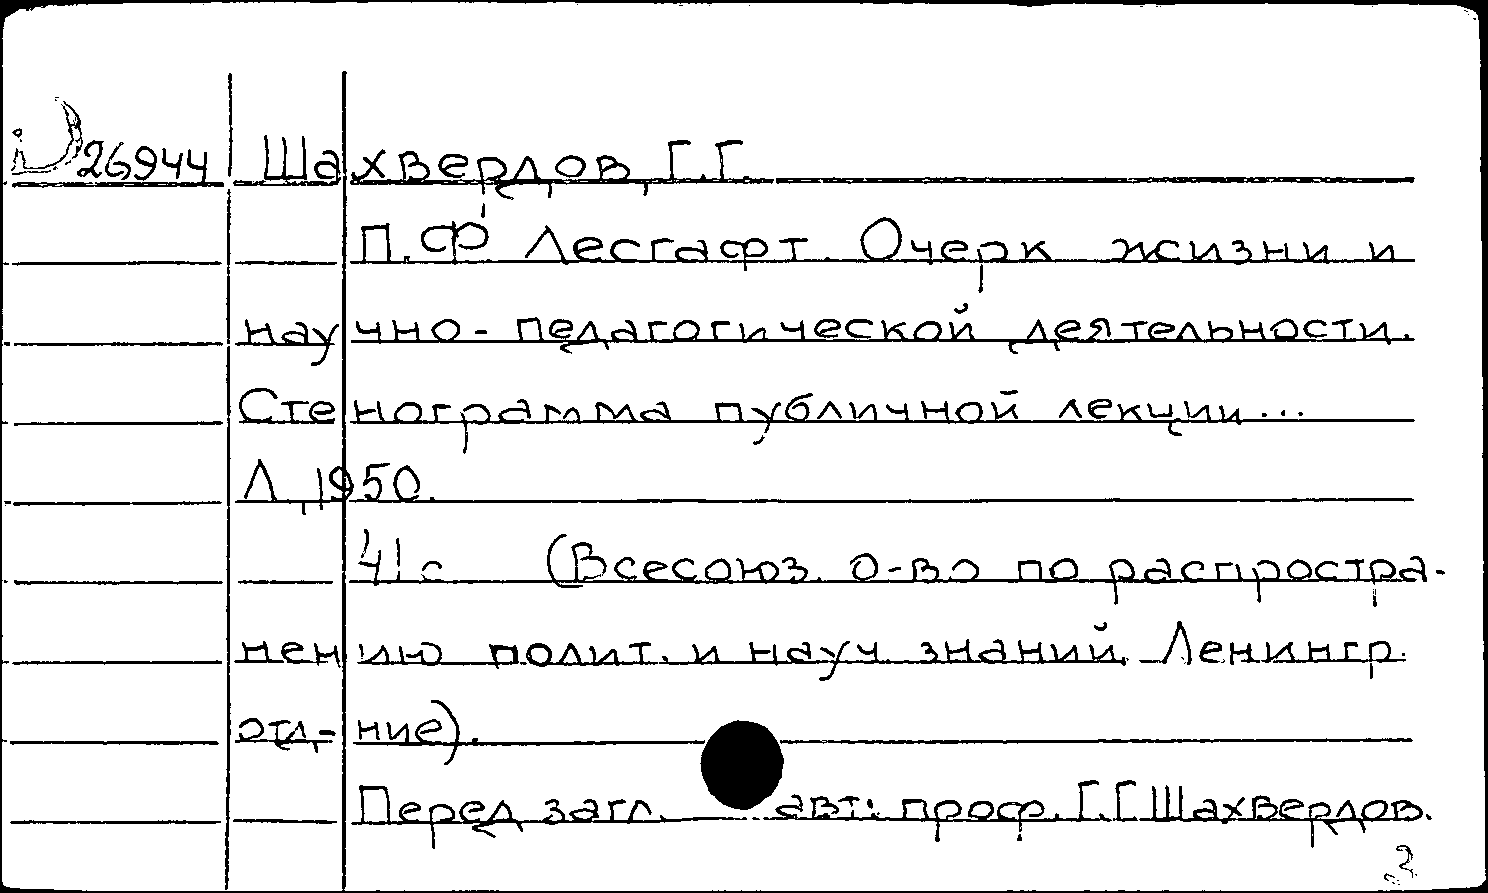 D26944 Шахвердов, Г.Г.
П.Ф Лесгафт. Очерк жизни и
научно-педагогической деятельности.
Стенограмма публичной лекции...
Л, 1950.
41 с (Всесоюз. о-во по распростра-
нению полит. и науч. знаний. Ленингр.
отд-ние).
Перед загл. авт: проф. Г.Г Шахвердов.